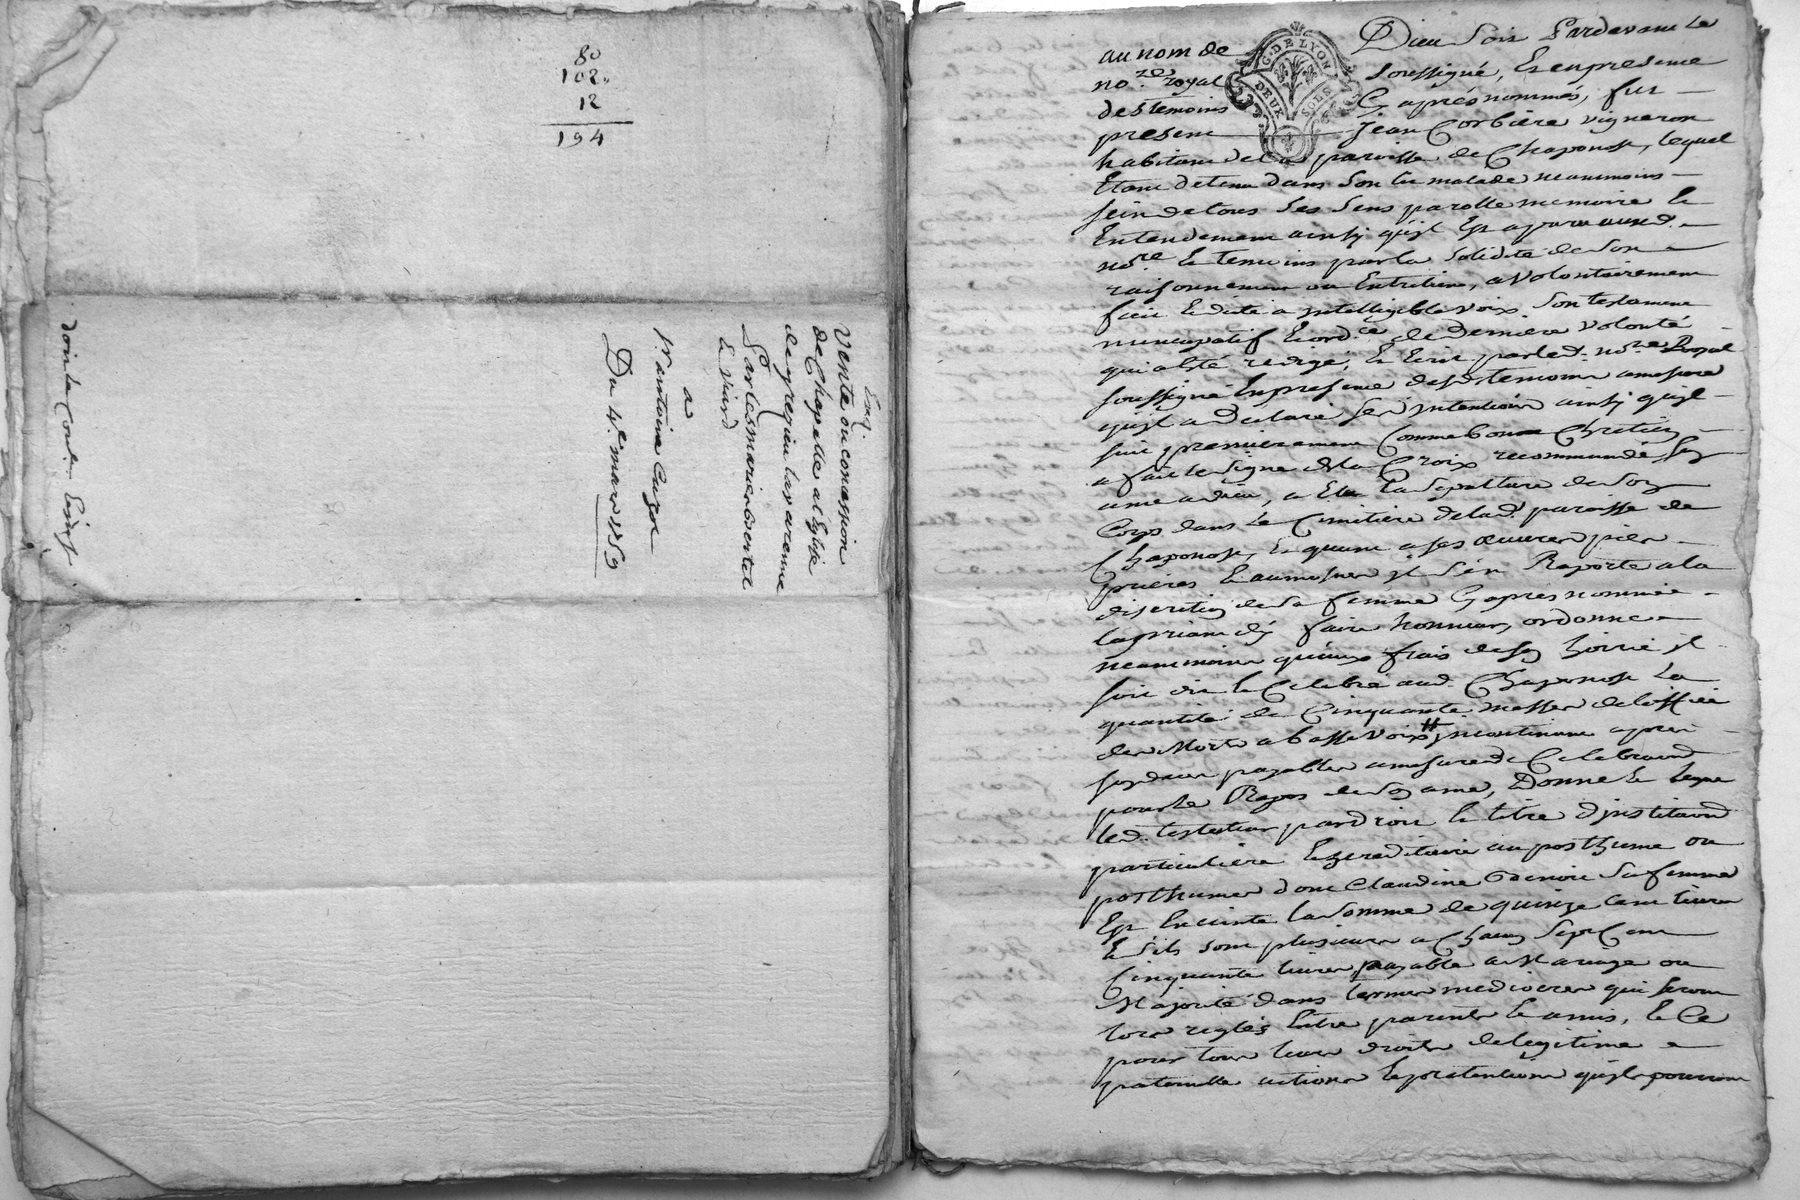 80
102.
12
194
Vente ou concession
de Chapelle a l'Eglise
de gregieu la varenne
Par les mariés
a
Sr. antoine
Du 4e. mars 1759
G. DE LYON
DEUX SOLS
au nom de Dieu soit Pardevant le
no.re royal soussigné, Et en presence
des temoins Cy aprés nommés, fut
present Jean Corbiere vigneron
habitant de la paroisse de Chaponost, lequel
Etant detenu dans son lit malade neanmoins
sein de tous ses sens parolle memoire et
Entendement ainsy quil Est aparu aud.
nore. et temoins par la solidité de son
raisonnement ou Entretien, a volontairement
fait et dicté a intelligible voix son testament
nuncupatif et ordce. de derniere volonté
qui a Eté redigé, et Ecrit par led. nore. Royal
soussigné En presence desd. temoins a mesure
quil a declaré ses intentions ainsy quil
suit premierement Comme bon Chretien
a fait le signe de la Croix recommandé son
ame a dieu, a Elu la sepulture de son
Corps dans le Cimitiere de lad. paroisse de
Chaponost, Et quant a ses oeuvres pies
prieres et aumosnes il s'en Raporte a la
discretion de sa femme Cy apres nommée
la priant d'y faire honneur, ordonne
neanmoins quaux frais de son hoirie il
soit dit et Celebré aud. Chaponost La
quantité de Cinquante messes de l'office
des Morts a basse voix # incontinent apres
son deces payables a mesure de Celebraon
pour le Repos de son ame, Donne et legue
led. testateur par droit et titre d'institaon
particuliere Et hereditaire au posthume ou
posthumes dont Claudine sa femme
Est Enceinte la somme de quinze Cent livres
Et s'ils sont plusieurs a Chacun sept Cent
Cinquante livres, payable a Mariage ou
Majorité dans termes mediocres qui seront
lors reglés Entre parents et amis, Et Ce
pour tous leurs droits de legitime
paternelle actions et pretentions quils pourront